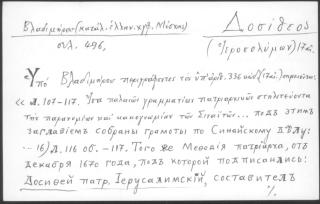 Βλαδιμήρος (κατάλ. ἑλλην. χφ. Μόσχας)
σελ. 496,
Δοσίθεος
(Ἱεροσολύμων) 17αι.
Ὑπὸ Βλαδιμήρου περιγράφεται τὸ ὑπ' ἀριθ. 336 (17αι.)
« Λ. 107-117. Ὑπὸ παλαιῶν γραμμάτων πατριαρχικῶν
τὸν παρανομίαν καὶ τῶν Σιναϊτῶν... подъ этимъ
заглавіемъ собраны грамоты по Синайскому дѣлу:
-- 16) Л. 116 об. -- 117. Того же Меѳодія патріарха, отъ
декабря 1670 года, подъ которой подписались:
Досиѳей патр. Іерусалимскій, составитель
·/.